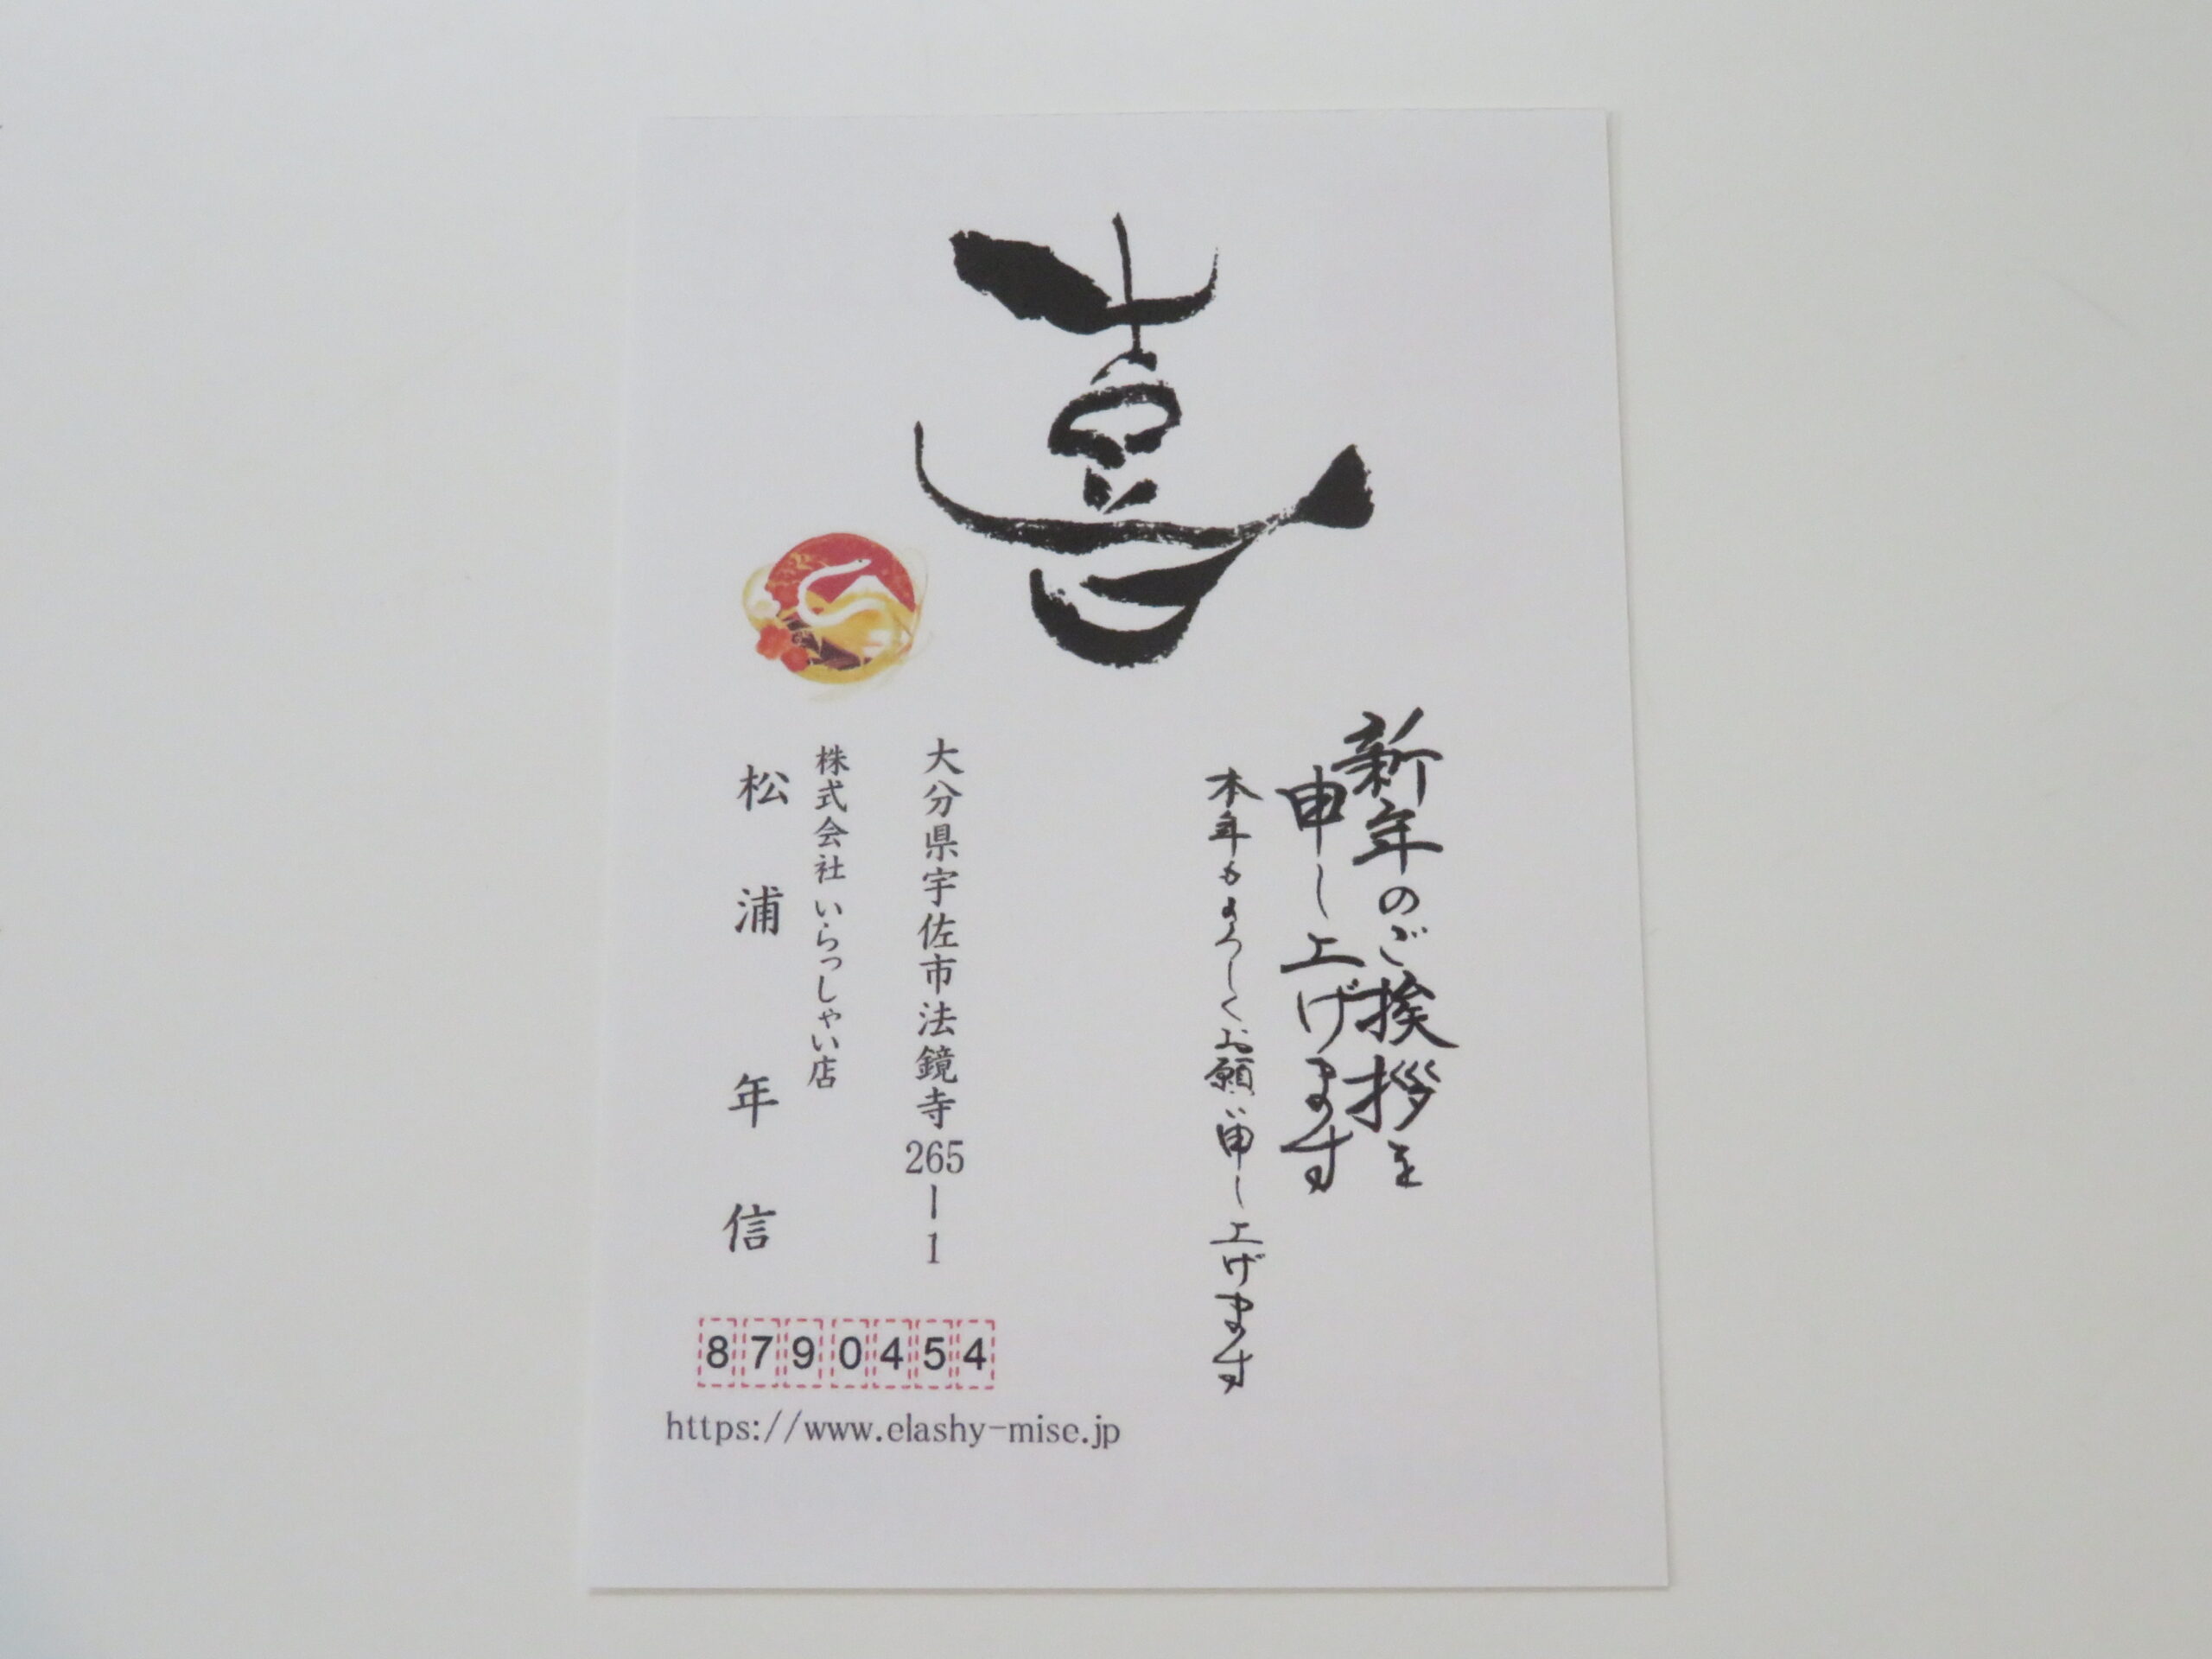 喜
新年のご挨拶を
申し上げます
本年もよろしくお願い申し上げます
大分県宇佐市法鏡寺265ー1
株式会社 いらっしゃい店
松浦 年信
8790454
https://www.elashy-mise.jp